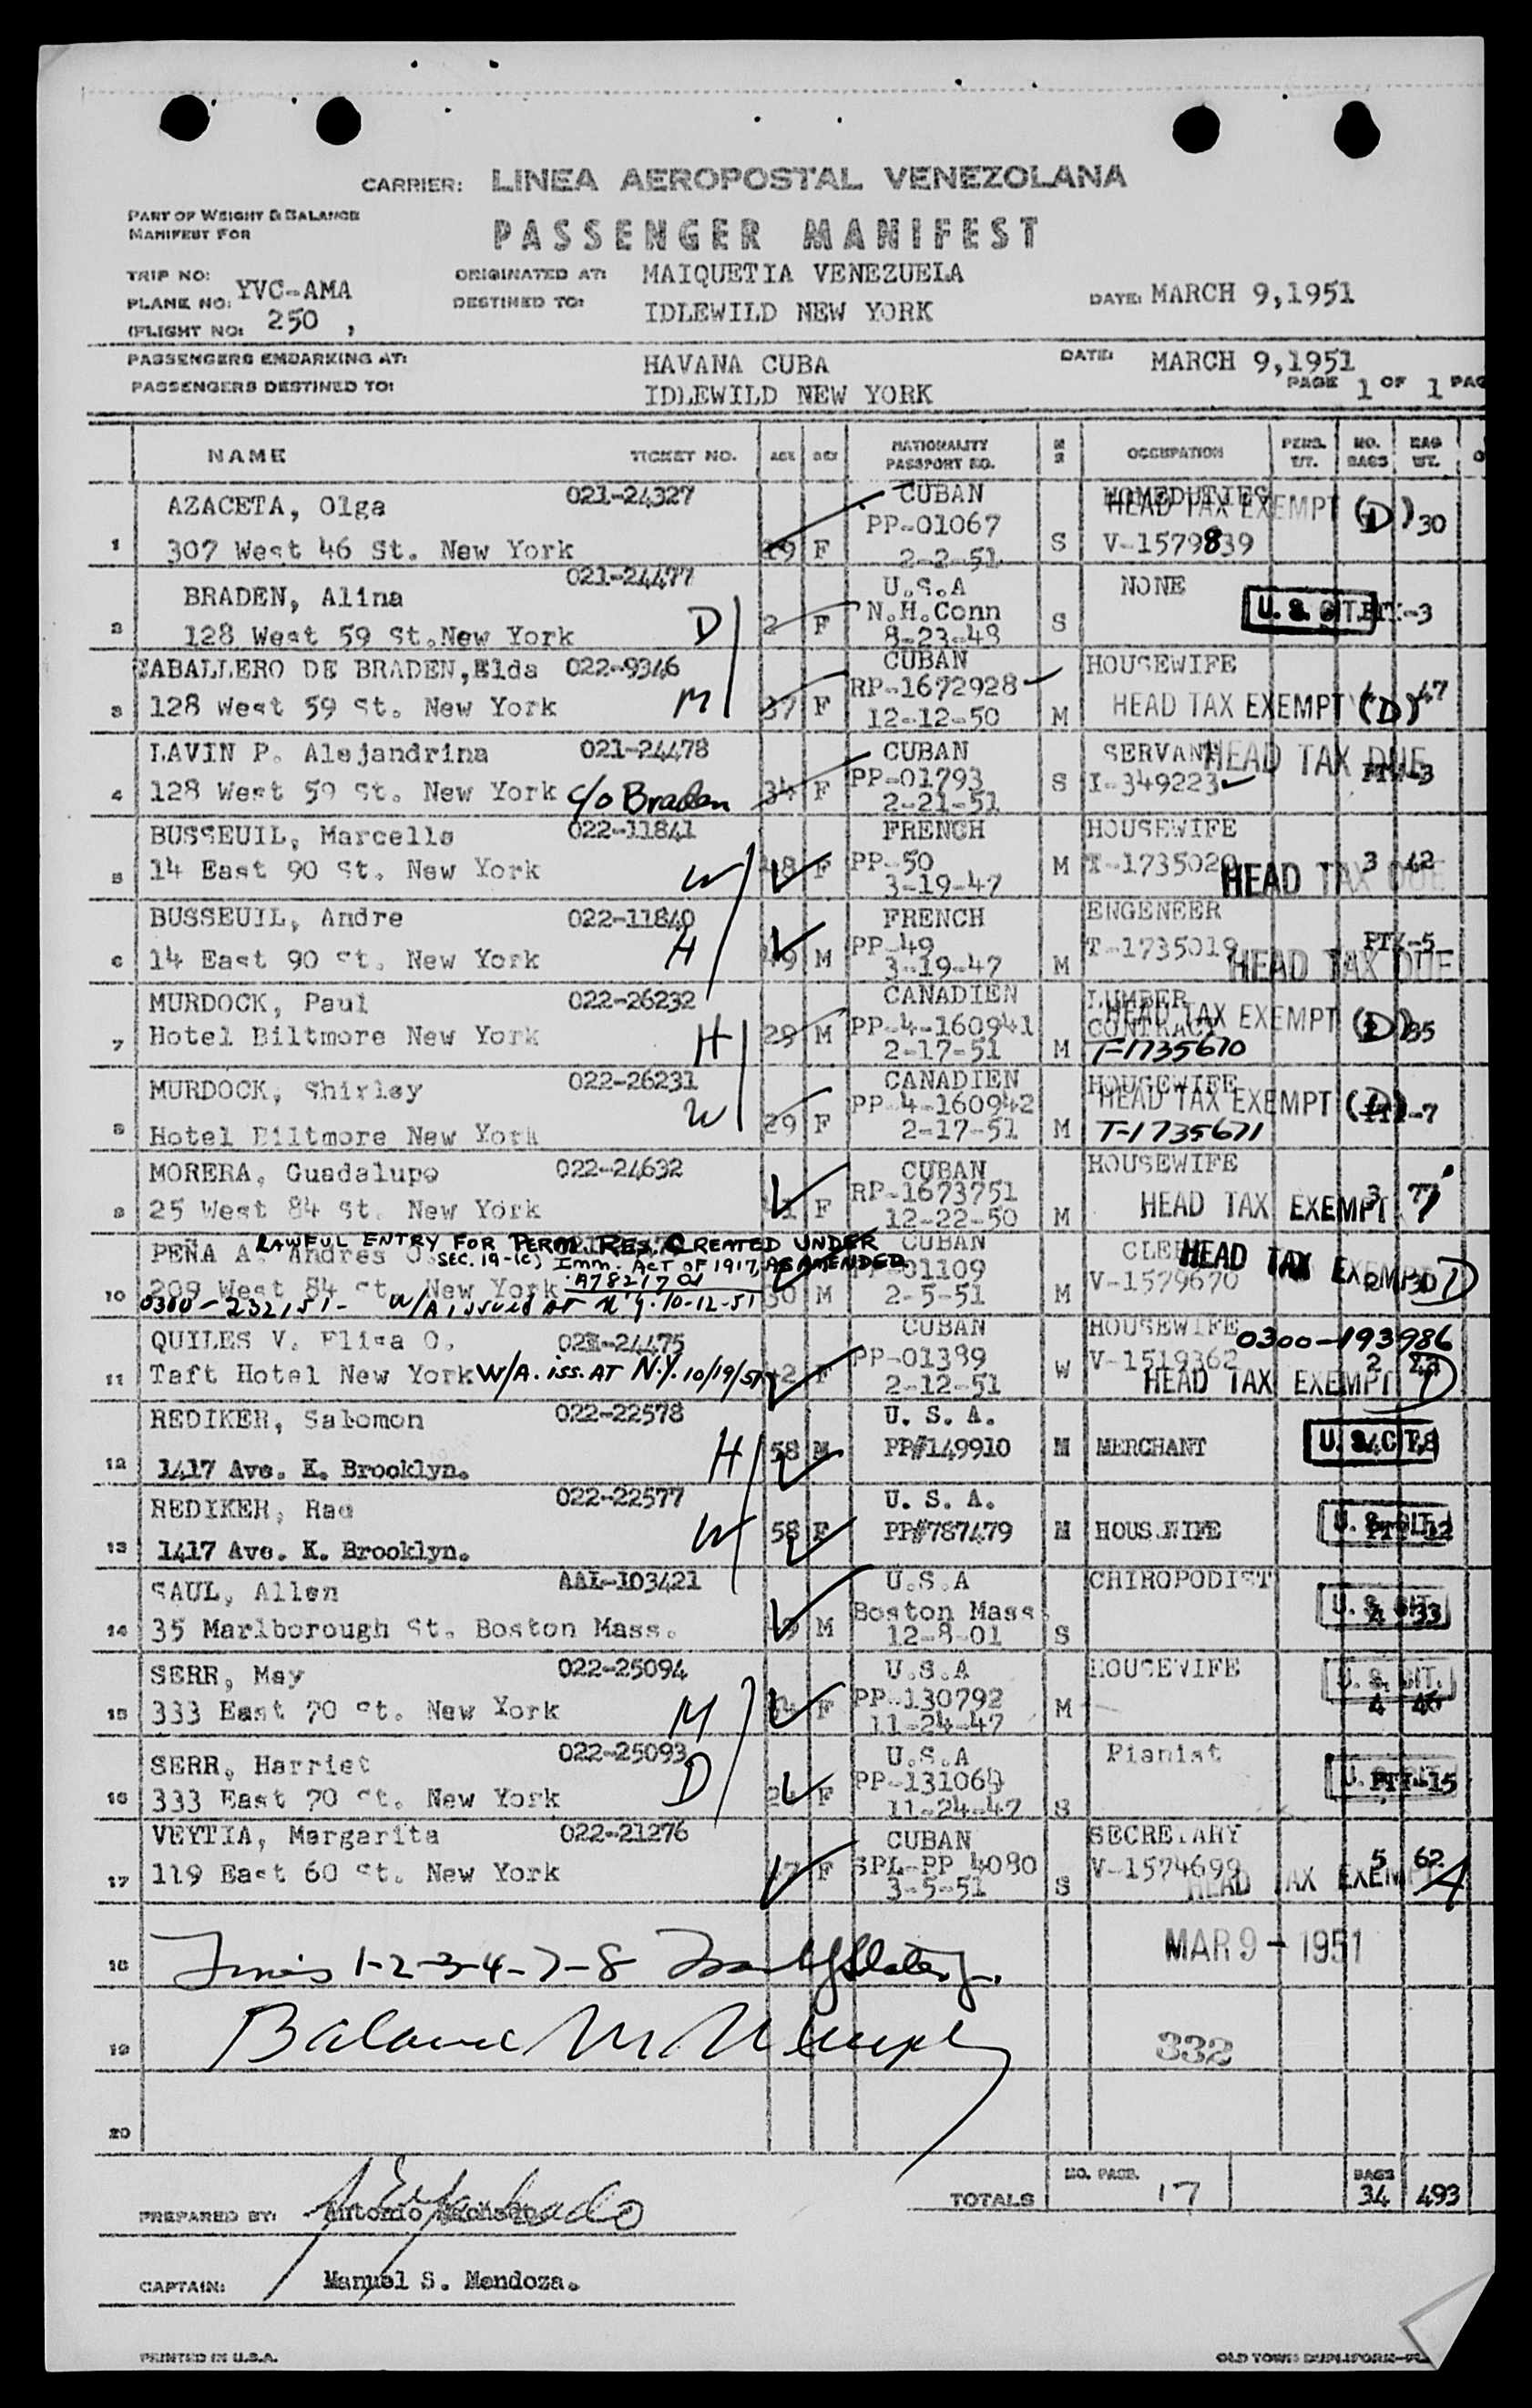 CARRIER: LINEA AEROPOSTAL VENEZOLANA
PART OF WEIGHT & BALANCE
MANIFEST FOR
PASSENGER MANIFEST
TRIP NO:
PLANE NO: YVC-AMA
(FLIGHT NO: 250 ,
ORIGINATED AT: MAIQUETIA VENEZUELA
DESTINED TO: IDLEWILD NEW YORK
DATE: MARCH 9,1951
PASSENGERS EMBARKING AT: HAVANA CUBA
DATE: MARCH 9,1951
PASSENGERS DESTINED TO: IDLEWILD NEW YORK
PAGE 1 OF 1 PAG
NAME TICKET NO. AGE SEX NATIONALITY PASSPORT NO. M S OCCUPATION PERS. WT. NO. BAGS BAG WT.
1 AZACETA, Olga 021-24327 CUBAN HOMEDUTIES
HEAD TAX EXEMPT (D) 30
307 West 46 St. New York F PP-01067 2-2-51 S V-1579839
2 BRADEN, Alina 021-24477 U.S.A NONE
128 West 59 St.New York D 2 F N.H.Conn 8-23-48 S U.S. CIT. PTI-3
3 CABALLERO DE BRADEN,Elda 022-9346 CUBAN HOUSEWIFE
128 West 59 St. New York M 37 F RP-1672928 12-12-50 M HEAD TAX EXEMPT (D) 47
4 LAVIN P. Alejandrina 021-24478 CUBAN SERVANT HEAD TAX DUE
128 West 59 St. New York c/o Braden 34 F PP-01793 2-21-51 S I-349223
5 BUSSEUIL, Marcelle 022-11841 FRENCH HOUSEWIFE
14 East 90 St. New York W 48 F PP-50 3-19-47 M T-1735020 3 42 HEAD TAX DUE
6 BUSSEUIL, Andre 022-11840 FRENCH ENGENEER
14 East 90 St. New York H 49 M PP-49 3-19-47 M T-1735019 PTI-5 HEAD TAX DUE
7 MURDOCK, Paul 022-26232 CANADIEN LUMBER CONTRACT
HEAD TAX EXEMPT (D) 35
Hotel Biltmore New York H 29 M PP-4-160941 2-17-51 M T-1735670
8 MURDOCK, Shirley 022-26231 CANADIEN HOUSEWIFE
HEAD TAX EXEMPT
Hotel Biltmore New York W 29 F PP-4-160942 2-17-51 M T-1735671
9 MORERA, Guadalupe 022-24632 CUBAN HOUSEWIFE
25 West 84 St. New York 41 F RP-1673751 12-22-50 M HEAD TAX EXEMPT 3 77
LAWFUL ENTRY FOR PERM. RES. CREATED UNDER
SEC. 19-(c) Imm. ACT OF 1917, AS AMENDED
10 PEÑA A. Andres CUBAN HEAD TAX EXEMPT D
209 West 84 St. New York A7821701 30 M 01109 2-5-51 M V-1579670
0300-232151- W/A issued at N.Y. 10-12-51
11 QUILES V. Elisa O. 021-24475 CUBAN HOUSEWIFE 0300-193986
Taft Hotel New York W/A. iss. AT N.Y. 10/19/51 F PP-01389 2-12-51 W V-1519362
HEAD TAX EXEMPT D
12 REDIKER, Salomon 022-22578 U. S. A.
1417 Ave. K. Brooklyn. H 58 M PP#149910 M MERCHANT U.S. CIT.
13 REDIKER, Rae 022-22577 U. S. A.
1417 Ave. K. Brooklyn. W 58 F PP#787479 M HOUSEWIFE U.S. CIT. PTI-12
14 SAUL, Allen AAL-103421 U.S.A CHIROPODIST
35 Marlborough St. Boston Mass. 49 M Boston Mass. 12-8-01 S U.S. CIT. 33
15 SERR, May 022-25094 U.S.A HOUSEWIFE
333 East 70 St. New York M F PP-130792 11-24-47 M U.S. CIT. 4
16 SERR, Harriet 022-25093 U.S.A Pianist
333 East 70 St. New York D 24 F PP-131064 11-24-47 S U.S. CIT. PTI-15
17 VEYTIA, Margarita 022-21276 CUBAN SECRETARY
119 East 60 St. New York F SPL-PP 4080 3-5-51 S V-1574699 5 62 HEAD TAX EXEMPT
18 1-2-3-4-7-8 MAR 9 - 1951
19 Balance 332
20
TOTALS NO. PASS. 17 BAGS 34 493
PREPARED BY: Antonio
CAPTAIN: Manuel S. Mendoza.
PRINTED IN U.S.A. OLD TOWN DUPLIFORM